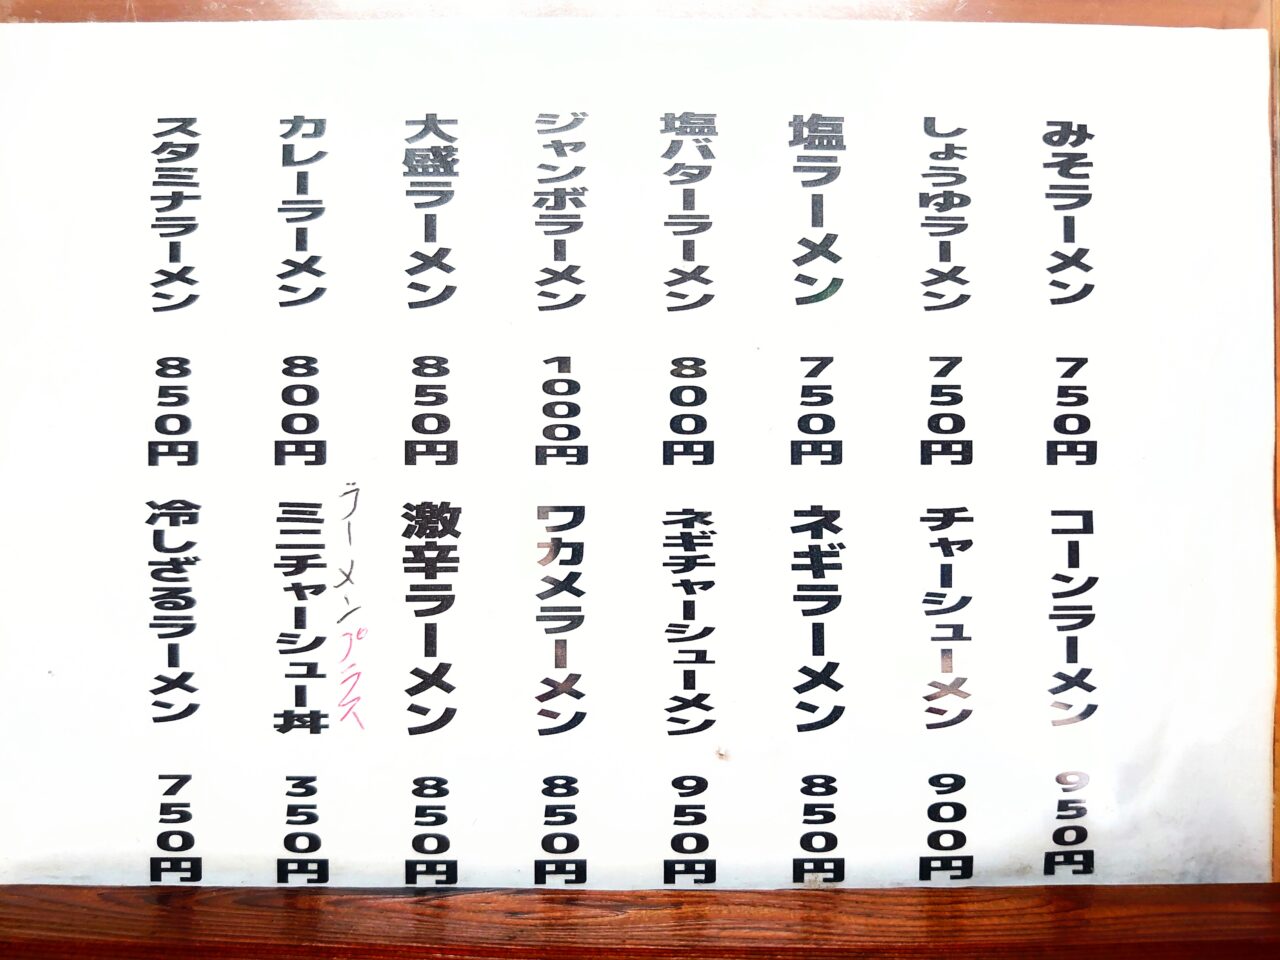 みそラーメン 750円
しょうゆラーメン 750円
塩ラーメン 750円
塩バターラーメン 800円
ジャンボラーメン 1000円
大盛ラーメン 850円
カレーラーメン 800円
スタミナラーメン 850円
コーンラーメン 950円
チャーシューメン 900円
ネギラーメン 850円
ネギチャーシューメン 950円
ワカメラーメン 850円
激辛ラーメン 850円
ラーメンプラス
ミニチャーシュー丼 350円
冷しざるラーメン 750円